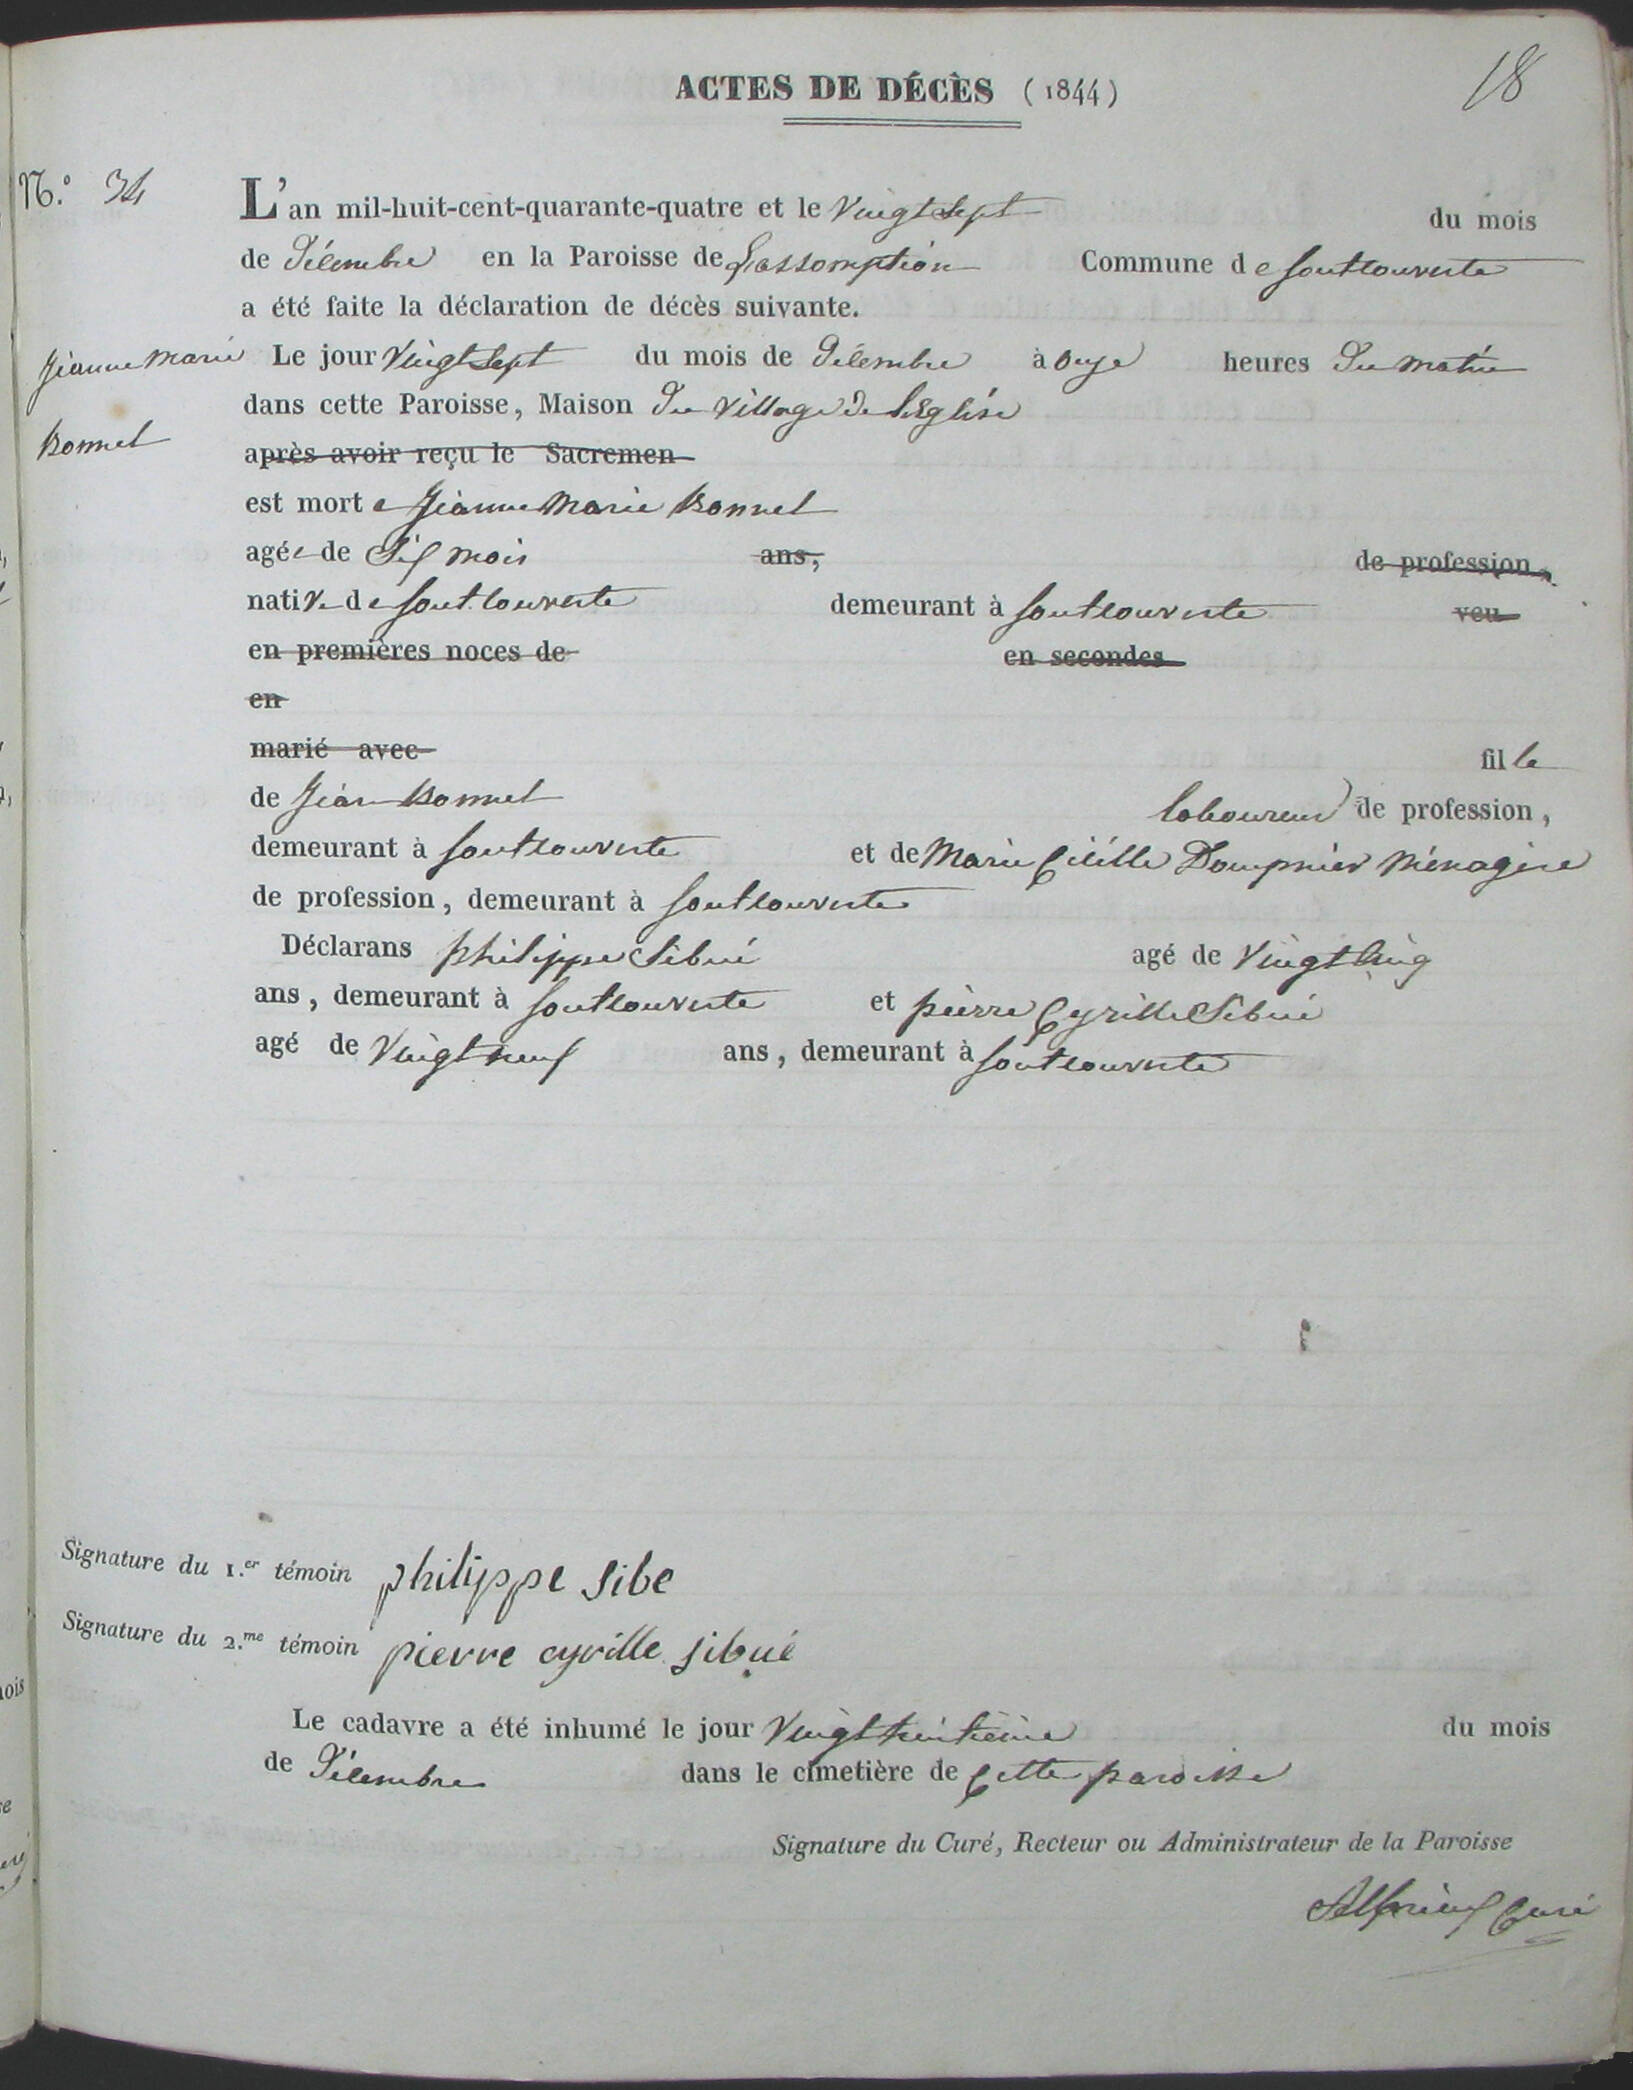 ACTES DE DÉCÈS (1844)
18
N.° 34
L'an mil-huit-cent-quarante-quatre et le vingt sept du mois
de Décembre en la Paroisse de Lassomption Commune de fontcouverte
a été faite la déclaration de décès suivante.
Jeanne Marie
Bonnel
Le jour vingt sept du mois de Décembre à onze heures Du matin
dans cette Paroisse, Maison Du village de L'Eglise
après avoir reçu le Sacremen
est morte Jeanne Marie Bonnel
agée de Six mois ans, de profession,
native de fontcouverte demeurant à fontcouverte veu
en premières noces de en secondes
en
marié avec fille
de Jean Bonnel laboureur de profession,
demeurant à fontcouverte et de Marie Cécille Dompnier Ménagère
de profession, demeurant à fontcouverte
Déclarans philippe Sibué agé de vingt cinq
ans, demeurant à fontcouverte et pierre Cyrille Sibué
agé de vingt neuf ans, demeurant à fontcouverte
Signature du 1.er témoin philippe sibe
Signature du 2.me témoin pierre cyrille sibué
Le cadavre a été inhumé le jour vingt huitième du mois
de Décembre dans le cimetière de cette paroisse
Signature du Curé, Recteur ou Administrateur de la Paroisse
Curé